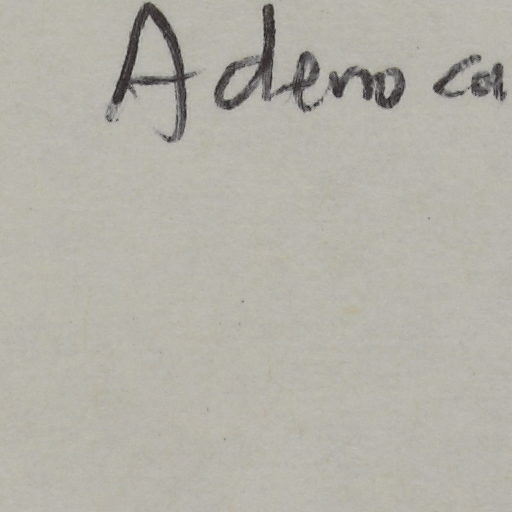 Adeno ca